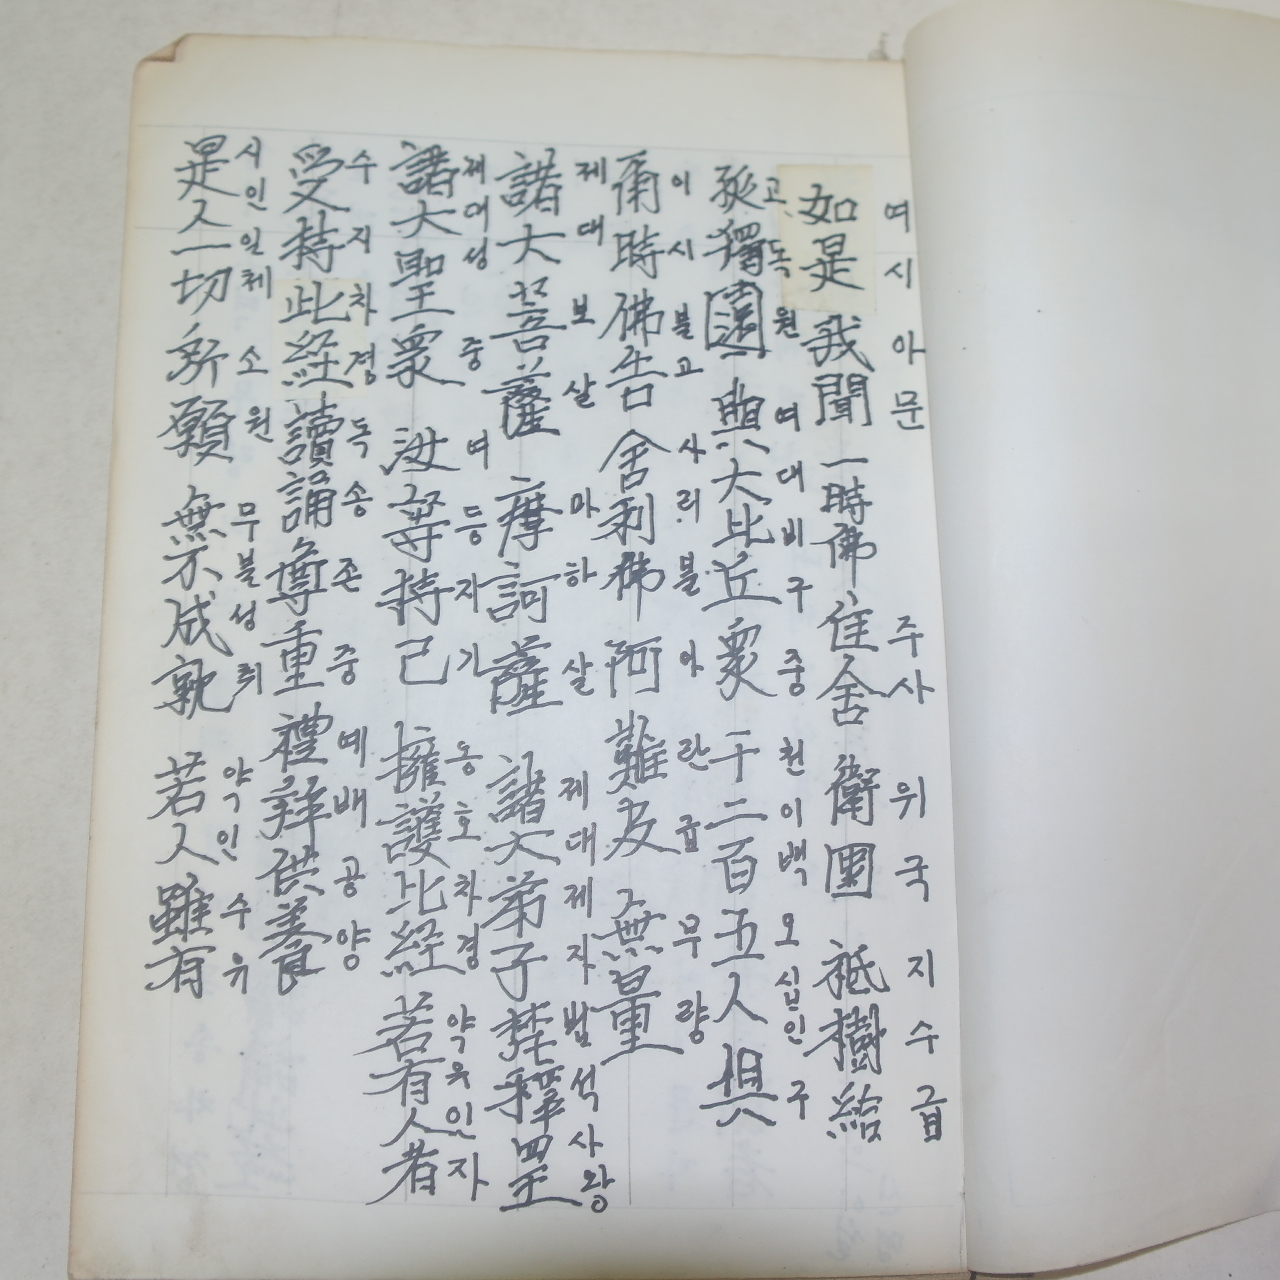 如是我聞 一時佛 住舍衛國 祇樹給
여시아문 주사위국 지수급
孤獨園 與大比丘衆 千二百五人 俱
고독원 여대비구중 천이백오십인구
爾時佛告 舍利佛 阿難及 無量
이시불고 사리불 아란급 무량
諸大菩薩 摩訶薩 諸大弟子 梵釋四王
제대보살 마하살 제대제자 범석사왕
諸大聖衆 汝等持己 擁護比経 若有人者
제대성중 여등자기 옹호차경 약유인자
受持此経 讀誦尊重 禮拜供養
수지차경 독송존중 예배공양
是人一切所願 無不成就 若人雖有
시인일체소원 무불성취 약인수유